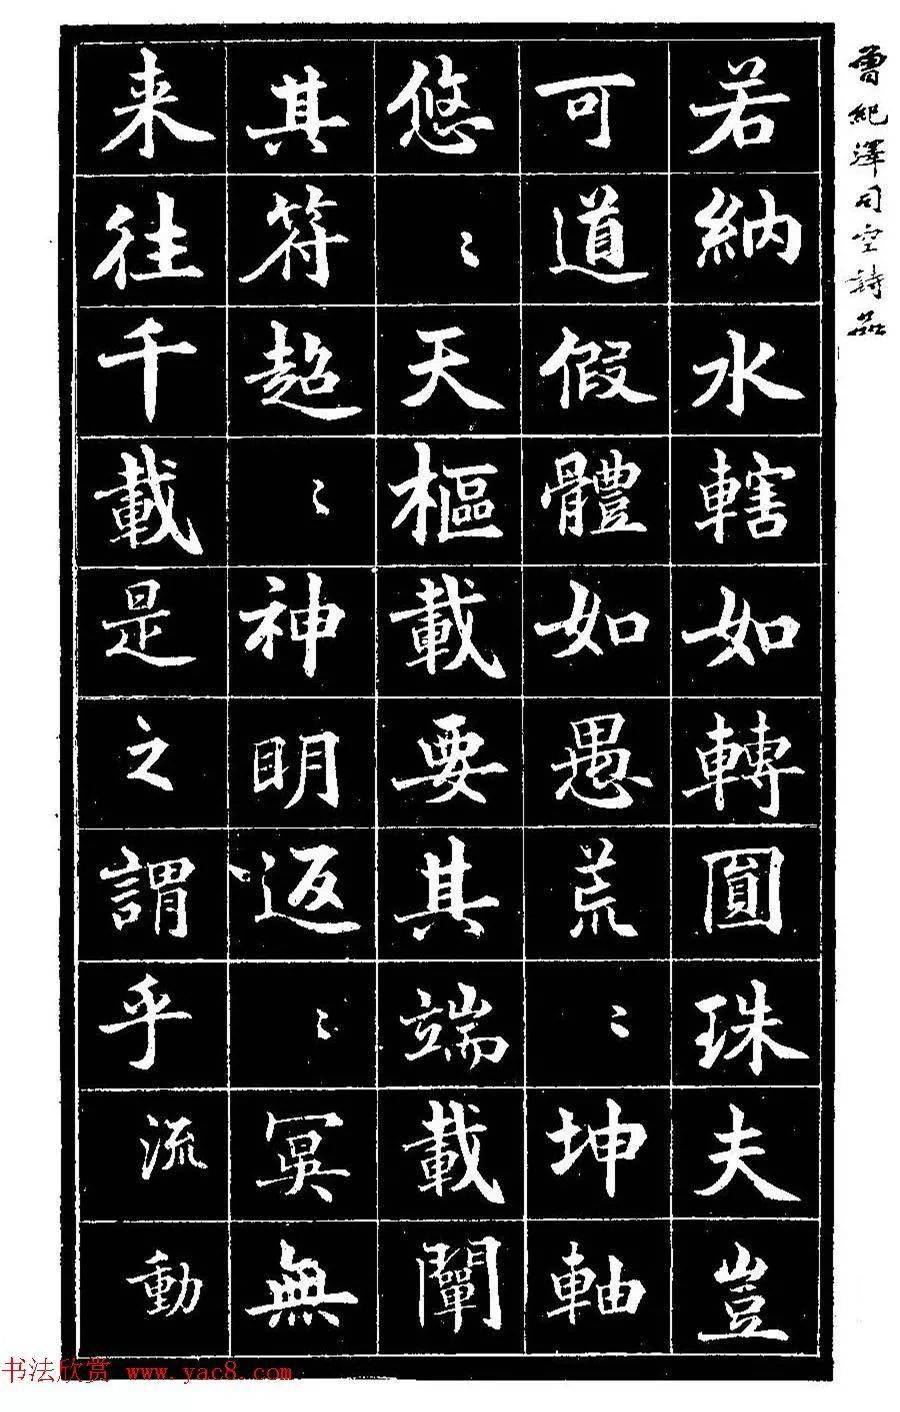 曾紀澤司空詩品
若納水轄如轉圓珠夫豈
可道假體如愚荒〻坤軸
悠〻天樞載要其端載闡
其符超〻神明返〻冥無
来往千載是之謂乎流動
书法欣赏 www.yac8.com